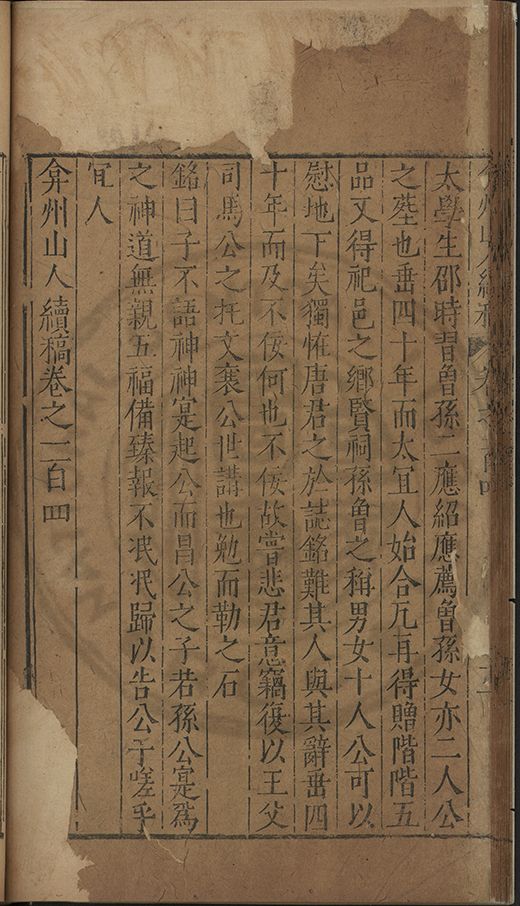 太學生邵時習魯孫二應紹應薦魯孫女亦二人公
之塟也垂四十年而太宜人始合兀再得贈階階五
品又得祀邑之鄉賢祠孫魯之稱男女十人公可以
慰地下矣獨恠唐君之於誌銘難其人與其辭垂四
十年而及不佞何也不佞故嘗悲君意竊復以王父
司馬公之托文襄公世講也勉而勒之石
銘曰子不語神神寔起公而昌公之子若孫公寔為
之神道無親五福備臻報不泯泯歸以告公于嗟乎
宜人
弇州山人續稿卷之一百四